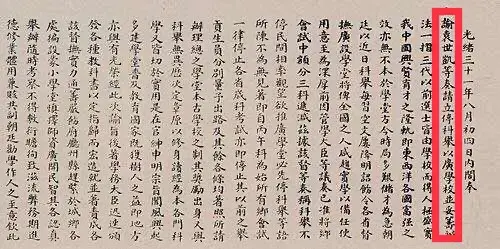 光緒三十一年八月初四日內閣奉
諭袁世凱等奏請立停科舉以廣學校並妥籌辦
法一摺三代以前選士皆由學校而得人極盛實
我中國興賢育才之隆軌即東西洋各國富強之
效亦無不本於學堂方今時局多艱儲才為急朝
廷以近日科舉每習空文屢降明詔飭令各省督
撫廣設學堂將俾全國之人咸趨實學以備任使
用意至為深厚前因管學大臣等議奏已准將鄉
會試中額分三科遞減茲據該督等奏稱科舉不
停民間相率觀望欲推廣學堂必先停科舉等語
所陳不為無見著即自丙午科為始所有鄉會試
一律停止各省歲科考試亦即停止其以前之舉
貢生員分別量予出路及其餘各條均著照所請
辦理總之學堂本古學校之制其獎勵出身又與
科舉無異歷次定章原以修身讀經為本各門科
學又皆切於實用是在官紳申明宗旨聞風興起
多建學堂普及教育國家既獲樹人之益即地方
亦與有光榮經此次諭旨後著學務大臣迅速頒
發各種教科書以定指歸而宏造就並著責成各
該督撫實力通籌嚴飭府廳州縣趕緊於鄉城各
處徧設蒙小學堂慎擇師資廣開民智其各認真
舉辦隨時考察不得敷衍瞻徇致滋流弊務期進
德修業體用兼賅共副朝廷勸學作人之至意欽此